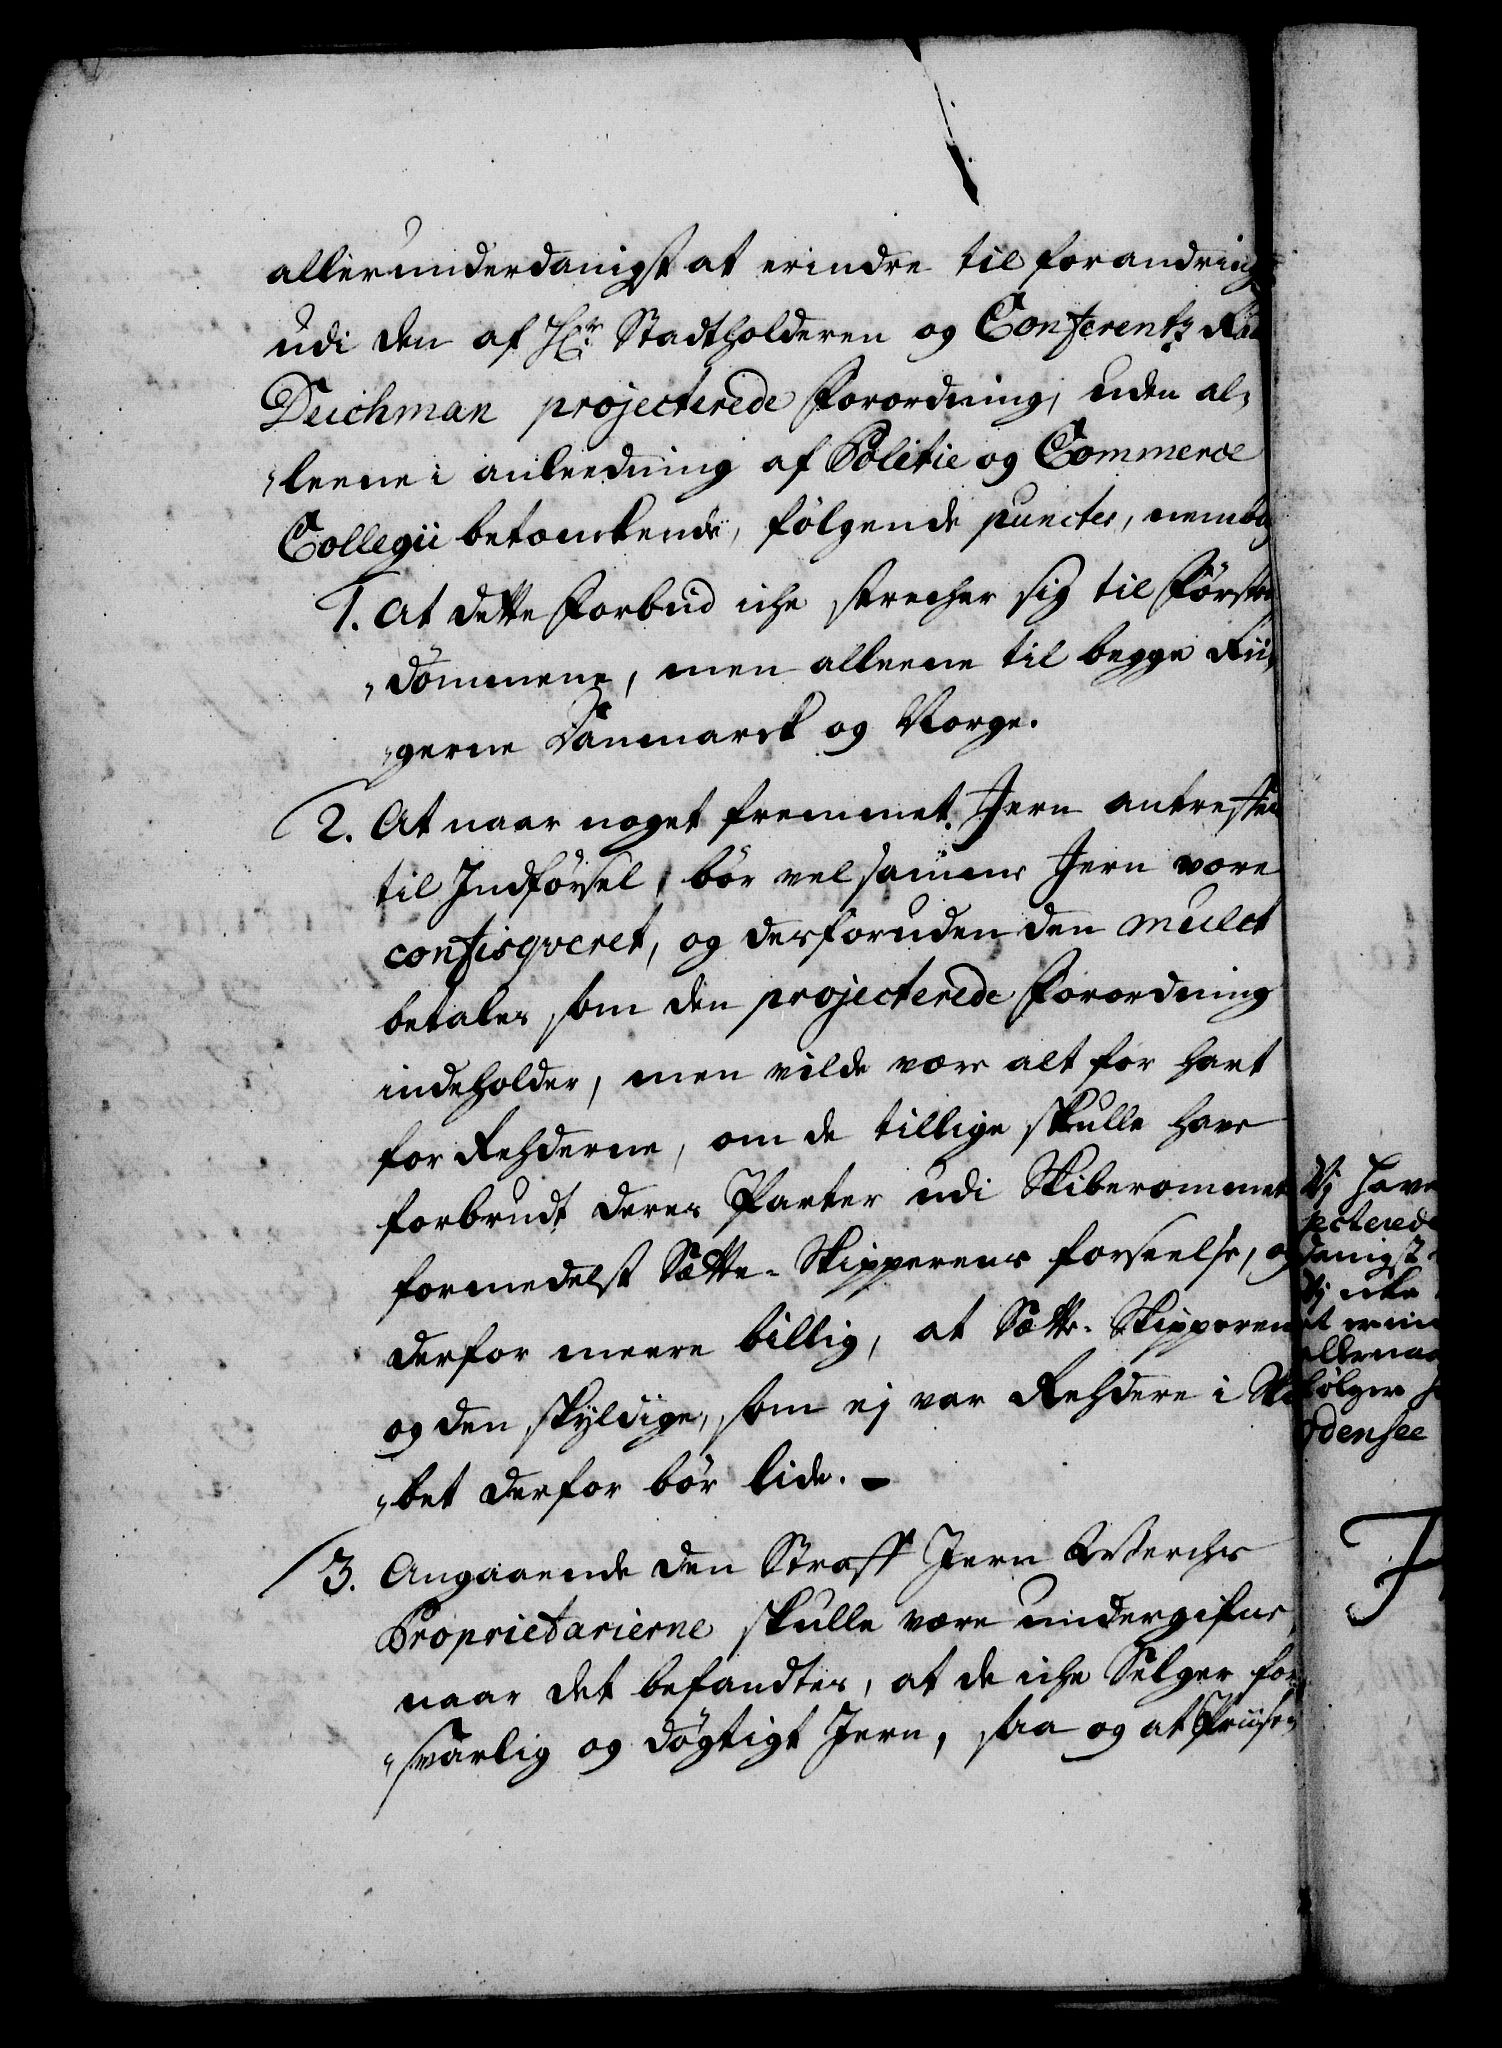 allerunderdanigst at erindre til forandring
udi den af Hr. Stadtholderen og Conferentz Raa
Deichman projecterede Forordning, uden al-
leene i anleedning af Politie og Commerce
Collegii betænkende, følgende puncter, nembl
1. At dette Forbud iche strecher sig til Første
dømmene, men alleene til begge Rii-
gerne Danmarck og Norge.
2. At naar noget fremmet Jern antreffes
til Indførsel, bør vel samme Jern være
confisqveret, og desforuden den mulct
betales, som den projecterede Forordning
indeholder, men vilde være alt for hart
for Rehderne, om de tillige skulle have
forbrudt deres Parter udi Skiberommet
formedelst Sætte-Skipperens forseelse, og
derfor meere billig, at Sætte-Skipperen
og den skyldige, som ej var Rehdere i Ski
bet derfor bør lide. -
3. Angaaende den Straff Jern Werchs
Proprietarierne skulle være undergifne,
naar det befandtes, at de iche Selger for-
svarlig og døgtigt Jern, saa og at Priisen
Vj have
jecterede
danigst
Vj icke
følger
Odensee